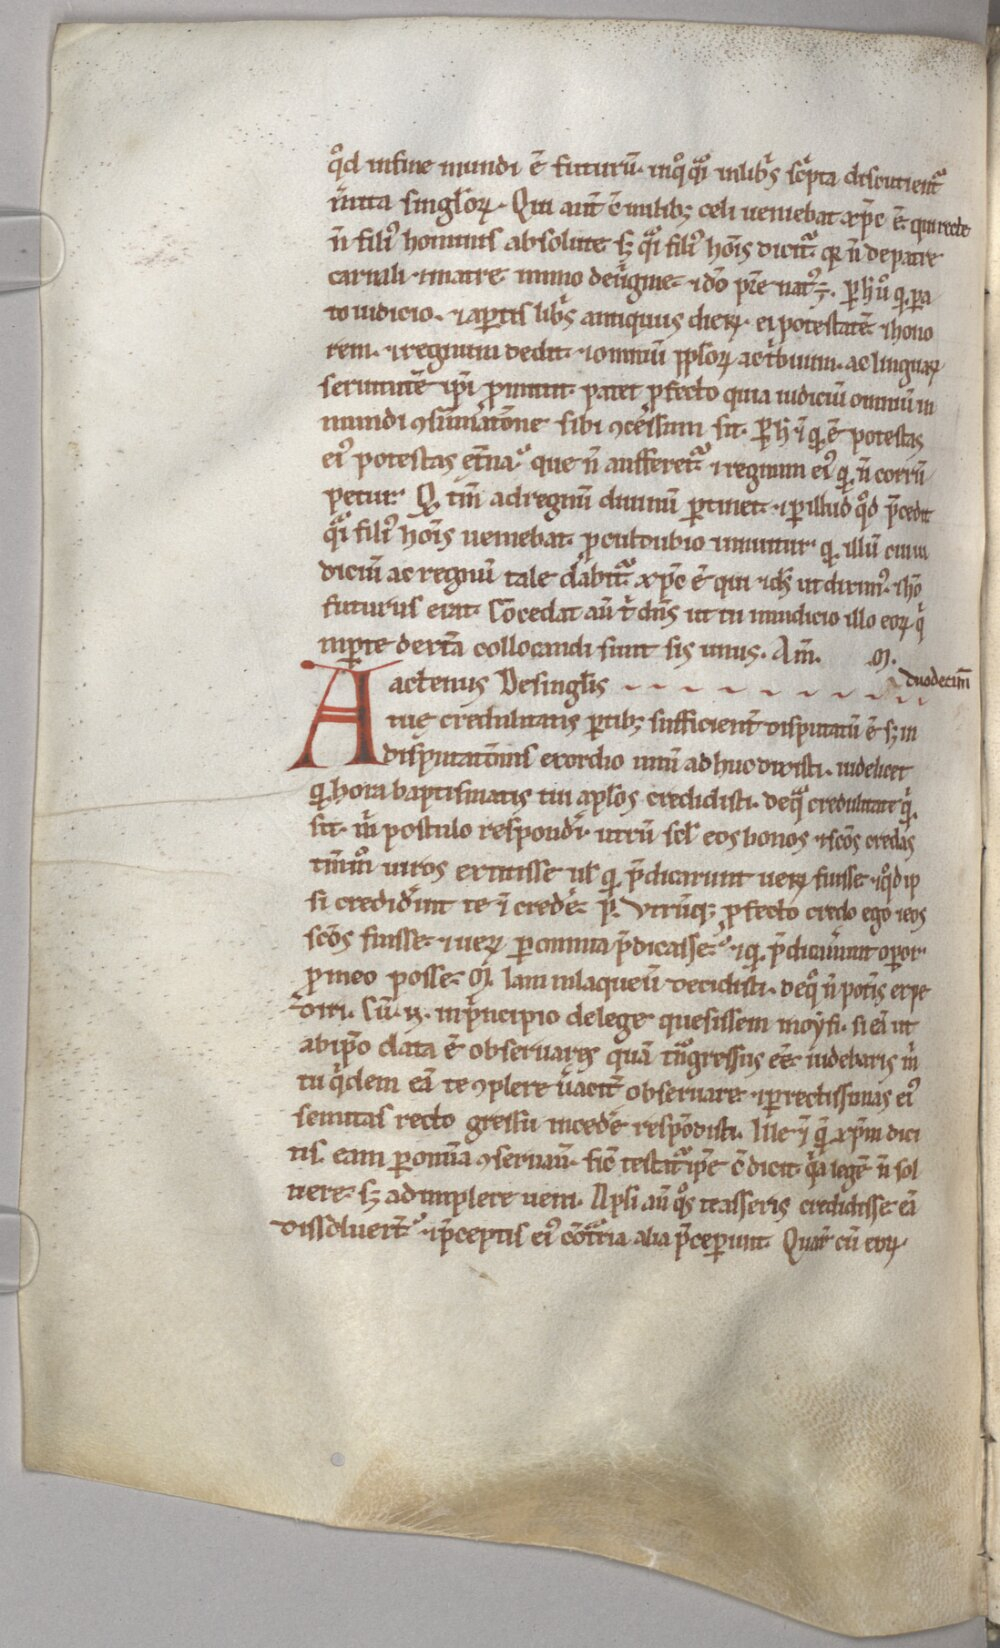 qd infine mundi ē futurū. inq̊ qͣsi inlibris scpta discutientᷣ
uita singloꝝ. Qui aut̄ c̄ nubibꝫ celi ueniebat xp̄c ē. qui recte
n̄ fili᷒ hominis absolute sꝫ qͣsi fili᷒ hōis dicitᷣ qꝛ n̄ de patre
carnali ⁊ matre immo de uirgine ⁊ dō pr̄e nat᷒ ē. Per h̄ ū q̨ pa
to iudicio. ⁊ aptis libris antiquus dieꝝ ei potestatē ⁊ hono
rem. ⁊ regnum dedit ⁊ omniū pploꝝ ac tribuum. ac linguaꝝ
seruitutē ip̄i patet ꝓfecto quia iudiciū omniū in
mundi ꝯsūmatione sibi ꝯcessum sit. Per h̄ q̨ ē potestas
ei᷒ potestas et̄na que n̄ aufferetᷣ ⁊ regnum ei᷒ q̨ n̄ corrū
petur. Q tm̄ ad regnū diuinū ꝑtinet. ⁊ ꝑ illud qd p̄cedit
qͣsi fili᷒ hōis ueniebat. ꝓculdubio innuitur q̨ illū cui iu
diciū ac regnū tale dabitᷣ xp̄c ē qui ⁊ dꝰ ut dixim᷒. ⁊ hō
futurus erat. Cōcedat aū t̄ dn̄s ut tu in iudicio illo eoꝝ q̇
in ꝑte dextra collocandi sunt sis unus. Am̄. .M.
Hactenus De singlis duodecim̄
tue credulitatis ꝑtibꝫ sufficient̄ disputatū ē sꝫ in
disputationis exordio unū ad huc dixisti. uidelicet
q̨ hora baptismatis tui aplos credidisti. deqͣ credulitate q̨
sit. m̄ postulo respondēi. utrū scl eos bonos ⁊ scōs credas
tm̄mō uiros extitisse ul q̨ p̄dicarunt ueꝝ fuisse ⁊ qd ip
si crediderint te ⁊ credere. P. Vtrūqꝫ ꝓfecto credo ego ⁊ eos
scōs fuisse. ⁊ ueꝝ ꝑ omnia p̄dicasse. ⁊ q̨ p̄dicauerunt opor
ꝓ meo posse. M. Iam in laqueū decidisti. deqͦ n̄ potis expe
diri. Cū. n. in principio de lege quesissem moysi. si eā ut
ab ip̄o data ē obseruares quā tn̄sgressus ēē uidebaris m̄
tu q̇dem eā te ꝯplere uacit̄ obseruare. ⁊ ꝑ rectissimas ei᷒
semitas recto gressu incedere respōdisti. Ille q̨ xpm̄ dici
tis. eam ꝑ omīa ꝯseruauit. sic̄ testatᷣ ip̄e c̄ dicit. qͣ legē n̄ sol
uere. sꝫ adimplere ueni. Apli aū q̊s te asseris credidisse eā
dissoluer̄t ⁊ p̄ceptis ei᷒ cōtraria alia p̄ceperunt. Quar̄ cū eoꝝ.